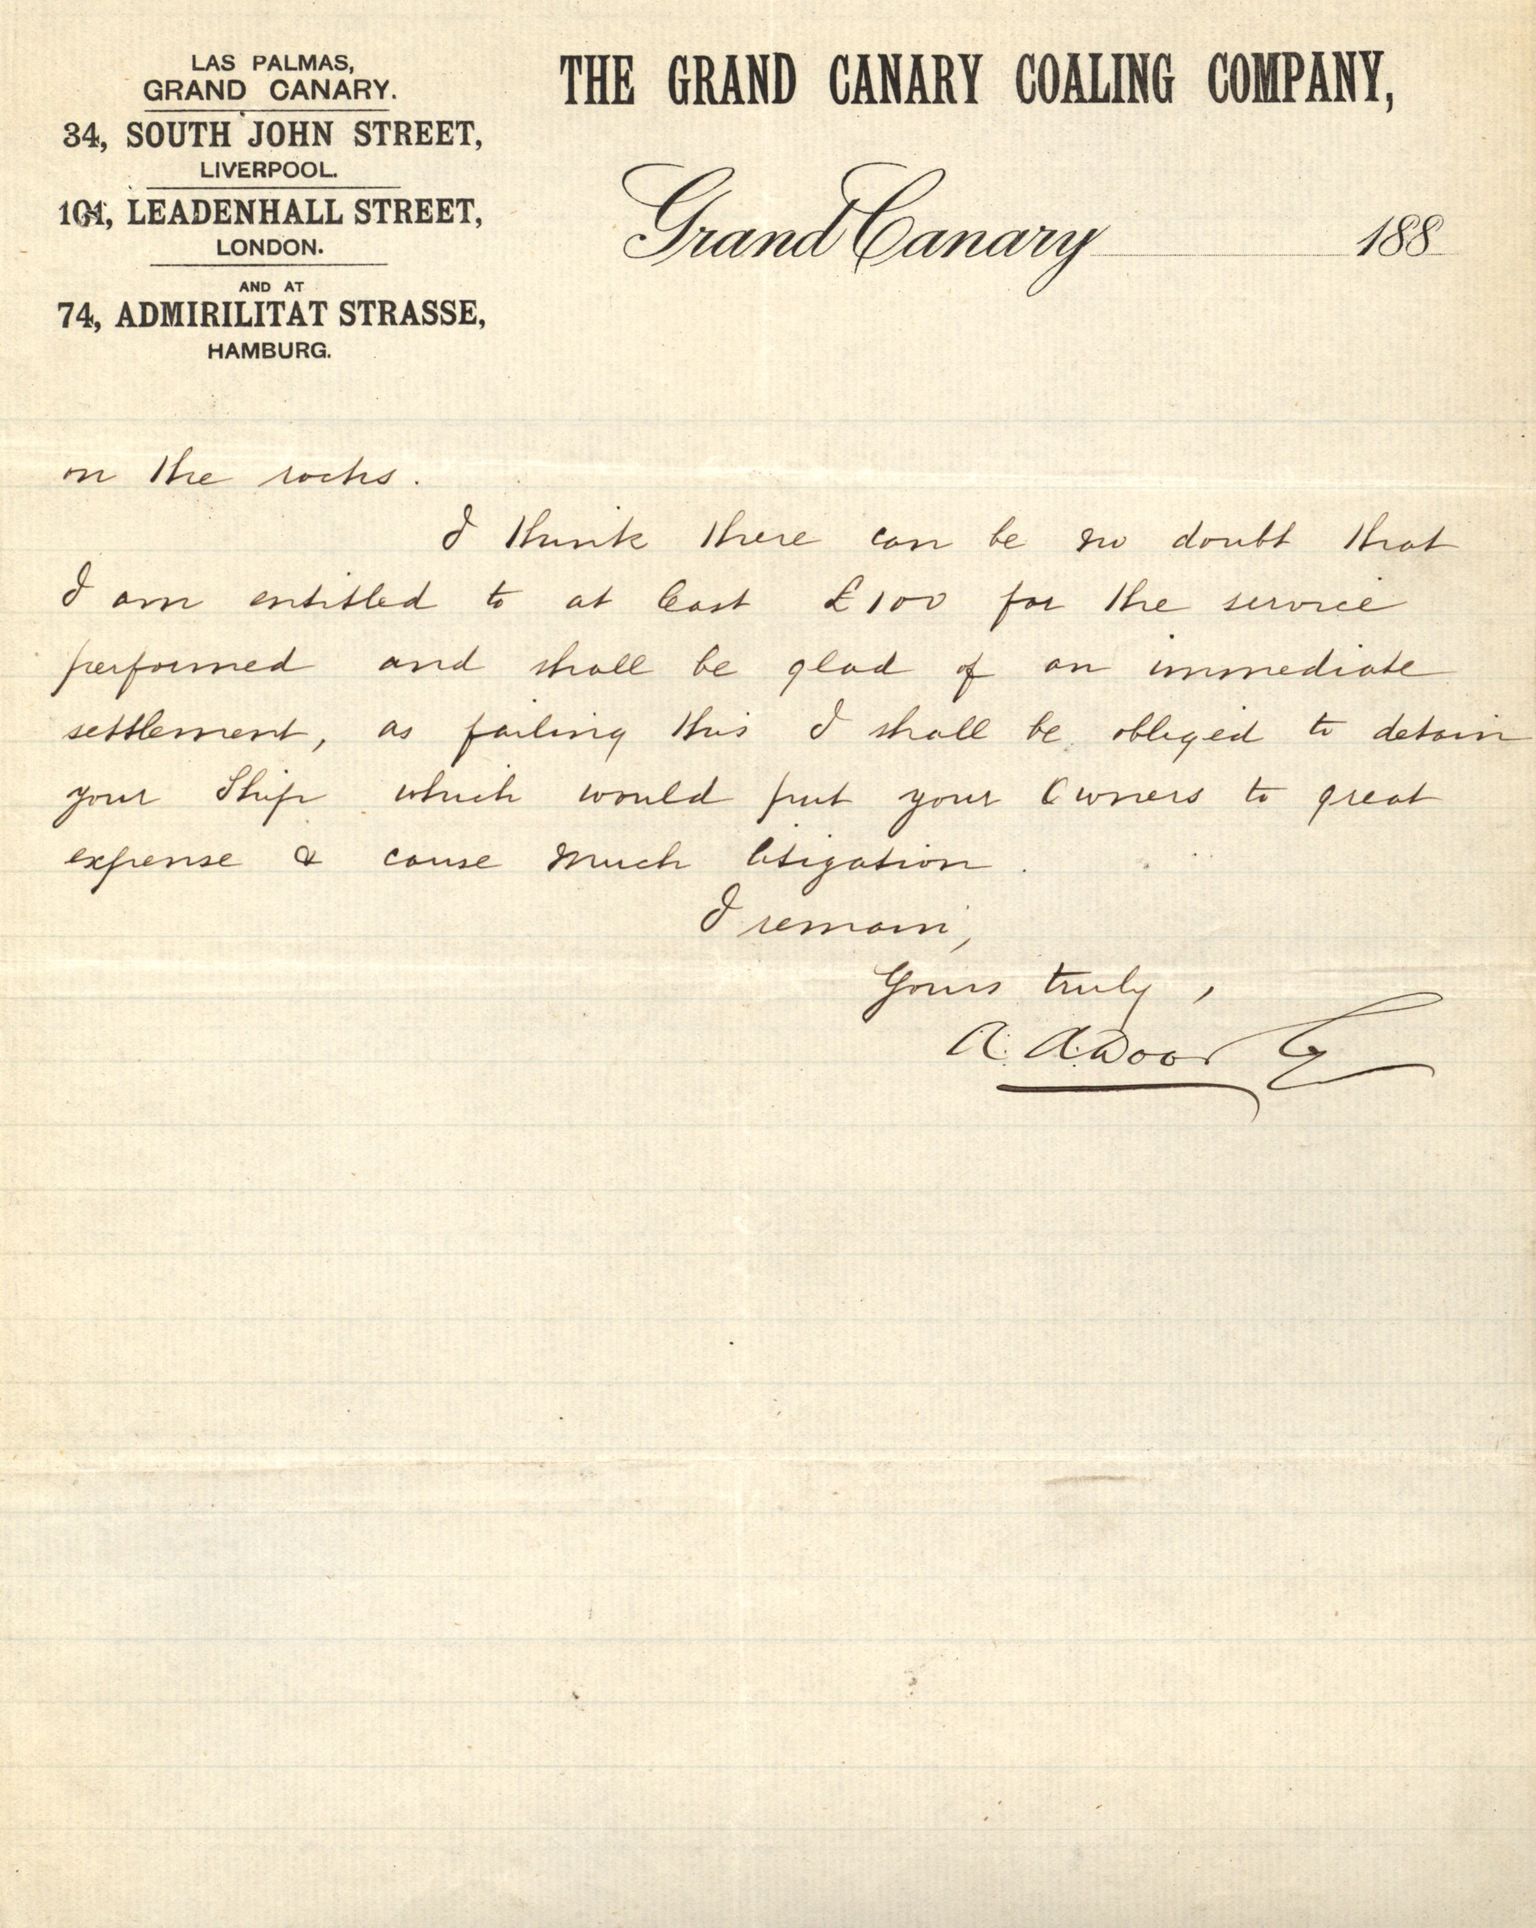 LAS PALMAS,
GRAND CANARY.
34, SOUTH JOHN STREET,
LIVERPOOL.
101, LEADENHALL STREET,
LONDON.
AND AT
74, ADMIRILITAT STRASSE,
HAMBURG.
THE GRAND CANARY COALING COMPANY,
Grand Canary 188
on the rocks.
I think there can be no doubt that
I am entitled to at least £100 for the service
performed and shall be glad of an immediate
settlement, as failing this I shall be obliged to detain
your Ship which would put your Owners to great
expense & cause much litigation.
I remain,
Yours truly,